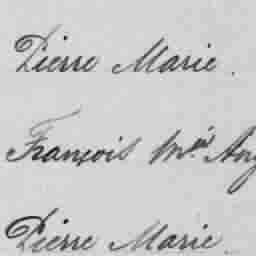 Pierre Marie.
François Mie
Pierre Marie.